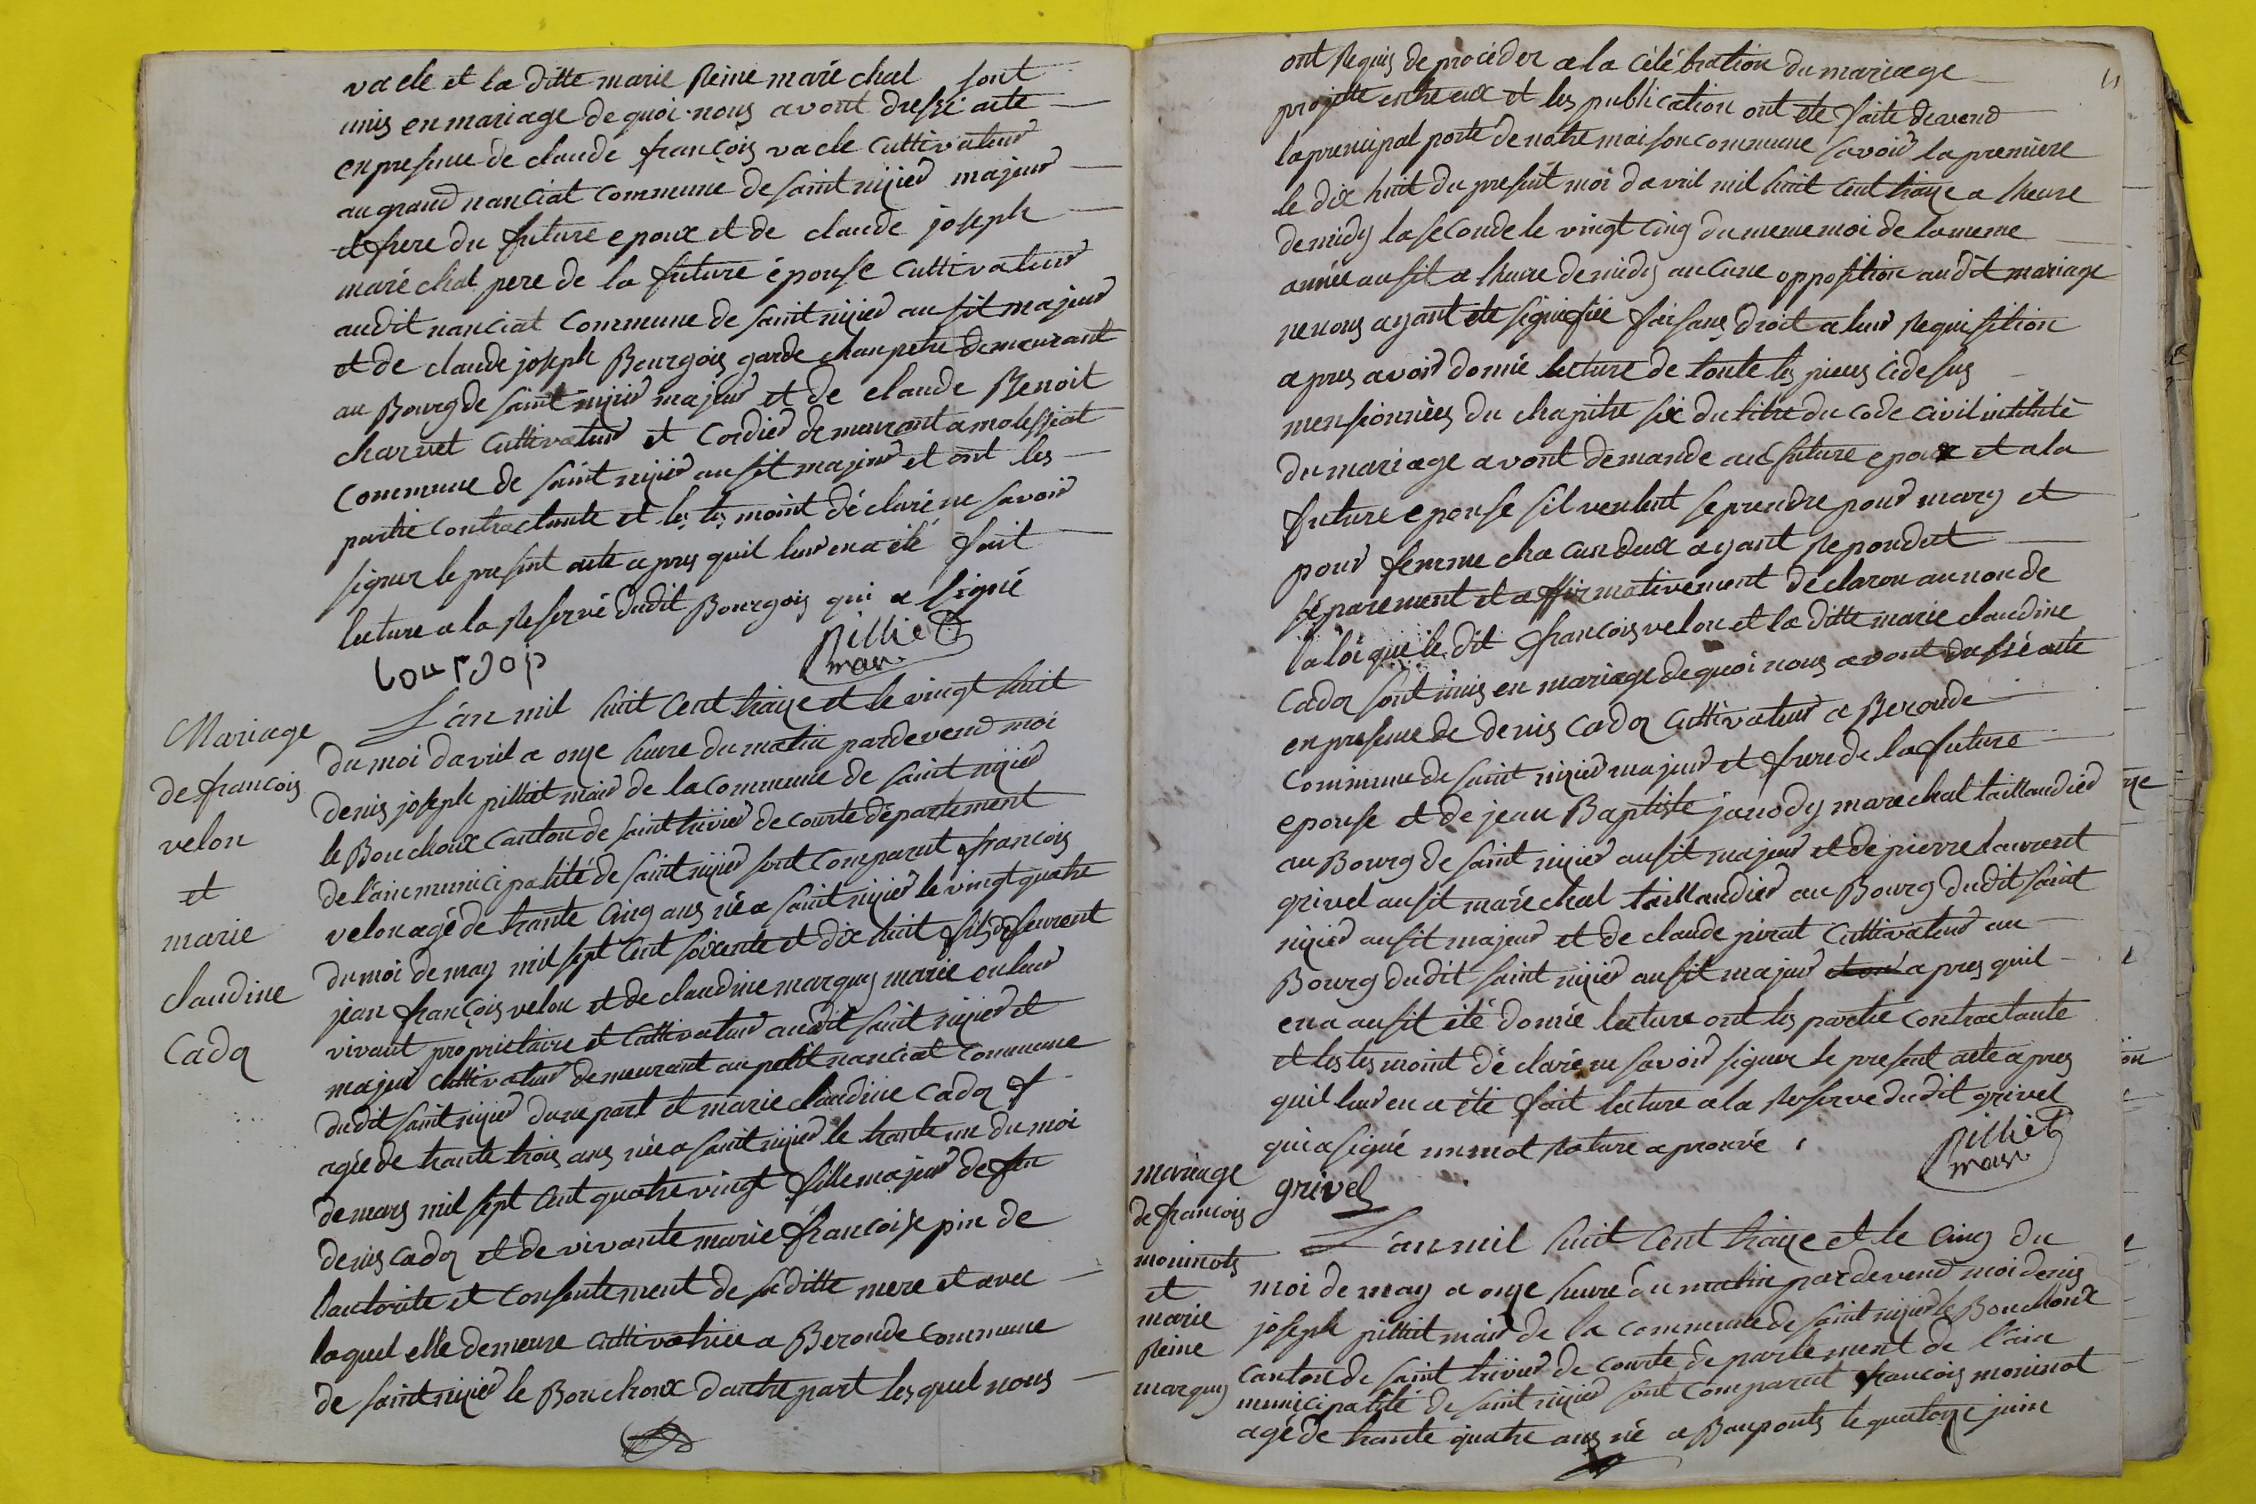 vacle et la ditte marie Reine maréchal sont
unis en mariage de quoi nous avont dressé acte
en presence de claude françois vacle cultivateur
au grand nanciat commune de saint nizier majeur
et frere du future epoux et de claude joseph
maréchal pere de la future épouse cultivateur
audit nanciat commune de saint nizier ausit majeur
et de claude joseph Bourgois garde chanpetre demeurant
au Bourg de saint nizier majeur et de claude Benoit
charvet cultivateur et cordier demeurant a molissiat
commune de saint nizier ausit majeur et ont les
partie contractante et les tes moint déclaré ne savoir
signer le present acte apres quil leur en a été fait
lecture a la Reservé dudit Bourgois qui a signé
Pilliet
maire
Mariage
de françois
velon
et
marie
claudine
Cadoz
L'an mil huit cent traize et le vingt huit
du moi davril a onze heure du matin pardevend moi
denis joseph pilliet maire de la commune de saint nizier
le Bouchoux canton de saint trivier de courte département
de l'ain municipalité de saint nizier sont comparut françois
velon agé de trante cinq ans né a saint nizier le vingt quatre
du moi de may mil sept cent soixente et dix huit fils de feurent
jean françois velon et de claudine marguy marié en leur
vivant proprietaire et cultivateur audit saint nizier et
majeur cultivateur demeurant au petit nanciat commune
dudit saint nizier dune part et marie claudine Cadoz f
agée de trante trois ans née a saint nizier le trante un du moi
de mars mil sept cent quatre vingt fille majeur de feu
denis cadoz et de vivante marie françoise pin de
lautorité et consentement de sa ditte mere et avec
laquel elle demeure cultivatrice a Beronde commune
de saint nizier le Bouchoux dautre part lesquel nous
ont Requis de proceder a la célébration du mariage
projette entre eux et les publication ont eté faite devend
la principal porte de notre maison commune savoir la première
le dix huit du present moi davril mil huit cent traize a heure
de midy la seconde le vingt cinq du meme moi de la meme
année ausit a heure de midy aucune opposition audit mariage
ne nous ayant eté signifiée faisans droit a leur Requisition
apres avoir donné lecture de toute les pieces cidesus
mensionnées du chapitre six du titre du code civil intitulé
du mariage avont demande au future epoux et a la
future epouse sil veulent se prendre pour mary et
pour femme chacun deux ayant Repondut
séparement et affirmativement declaron au non de
la loi que le dit françois velon et la ditte marie claudine
Cadoz sont unis en mariage de quoi nous avont dressé acte
en presence de denis Cadoz cultivateur a Beronde
commune de saint nizier majeur et frere de la future
epouse et de jean Baptiste janody marechal taillandier
au Bourg de saint nizier ausit majeur et de pierre laurent
grivel ausit maréchal taillandier au Bourg dudit saint
nizier ausit majeur et de claude pirat cultivateur au
Bourg dudit saint nizier ausit majeur apres quil
en a ausit été donné lecture ont les partie contractante
et les tes moint déclaré ne savoir signer le present acte apres
quil leur en a été fait lecture a la Reserve dudit grivel
qui a signé un mot Rature aprouvé
Pilliet
maire
grivel
mariage
de françois
moninots
et
marie
Reine
marguy
L'an mil huit cent traize et le cinq du
moi de may a onze heure du matin pardevend moi denis
joseph pilliet maire de la commune de saint nizier le Bouchoux
canton de saint trivier de courte departement de l'ain
municipalité de saint nizier sont comparut françois moninot
agé de trante quatre ans né a Bauponts le quatorze juin